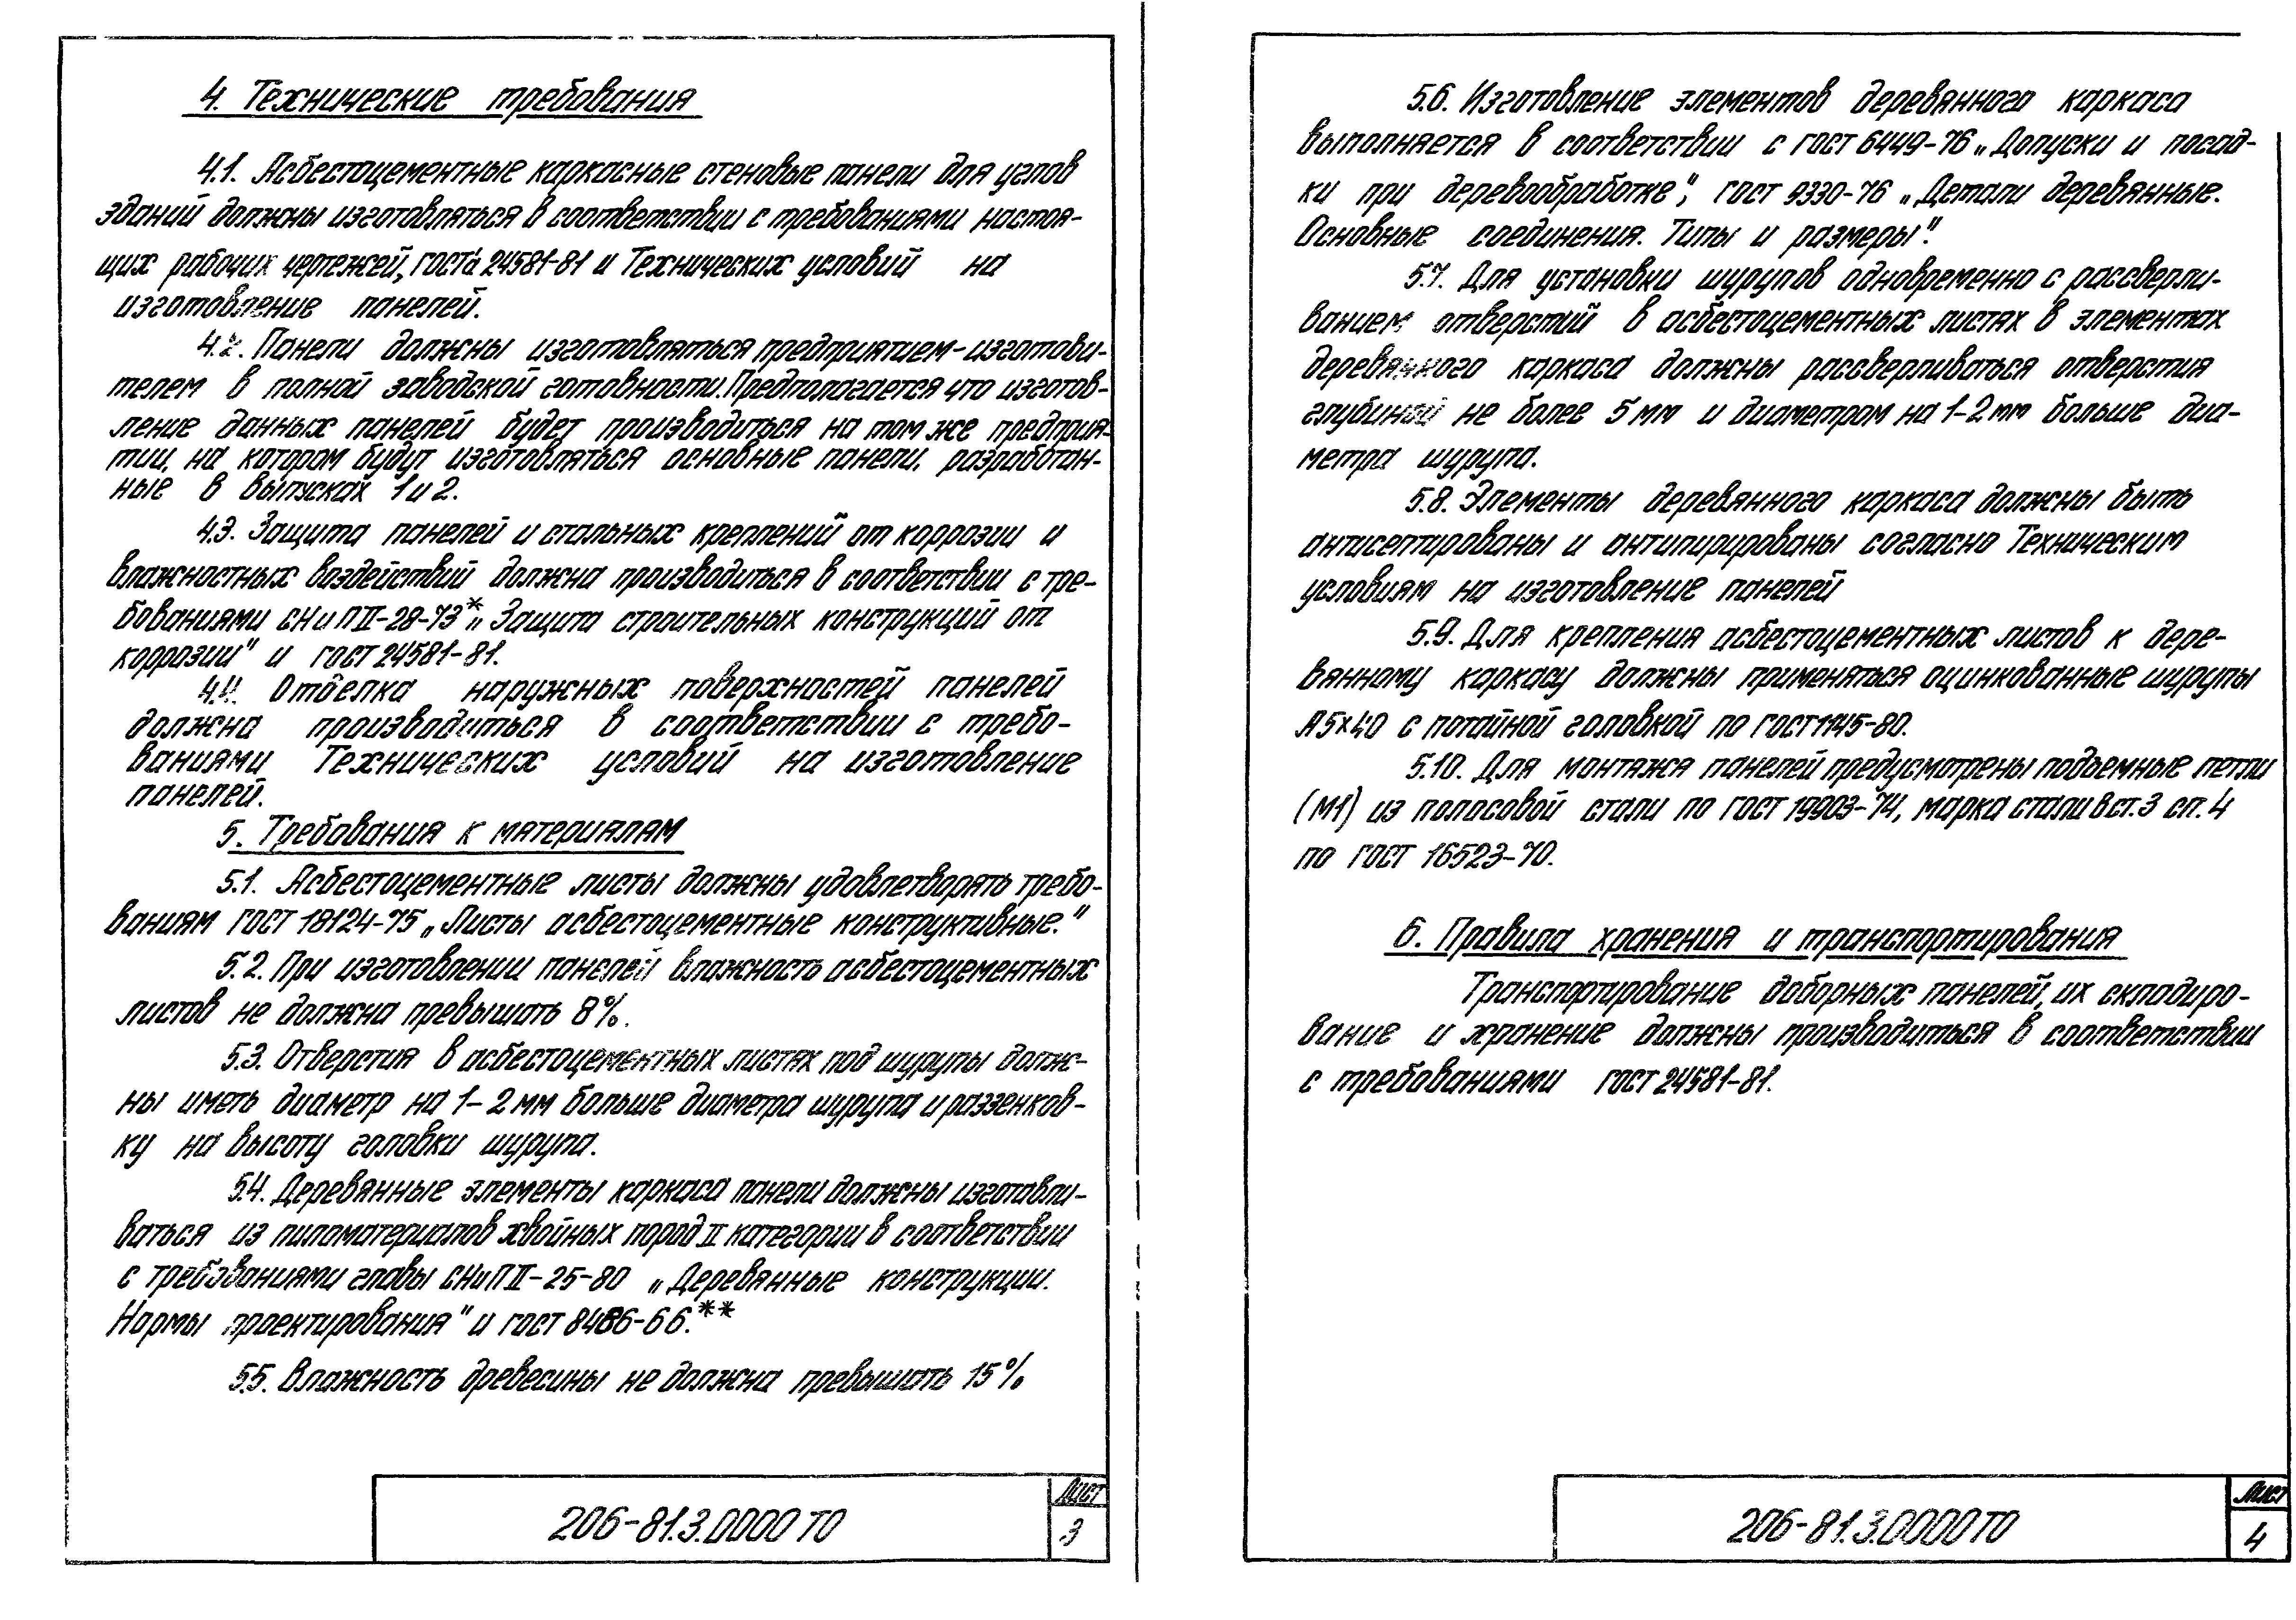 4. Технические требования
4.1. Асбестоцементные каркасные стеновые панели для углов
зданий должны изготовляться в соответствии с требованиями настоя-
щих рабочих чертежей, ГОСТа 24581-81 и Технических условий на
изготовление панелей.
4.2. Панели должны изготовляться предприятием-изготови-
телем в полной заводской готовности. Предполагается что изготов-
ление данных панелей будет производиться на том же предприя-
тии, на котором будут изготовляться основные панели, разработан-
ные в выпусках 1 и 2.
4.3. Защита панелей и стальных креплений от коррозии и
влажностных воздействий должна производиться в соответствии с тре-
бованиями СНиП II-28-73* „Защита строительных конструкций от
коррозии" и ГОСТ 24581-81.
4.4. Отделка наружных поверхностей панелей
должна производиться в соответствии с требо-
ваниями Технических условий на изготовление
панелей.
5. Требования к материалам
5.1. Асбестоцементные листы должны удовлетворять требо-
ваниям ГОСТ 18124-75 „Листы асбестоцементные конструктивные."
5.2. При изготовлении панелей влажность асбестоцементных
листов не должна превышать 8%.
5.3. Отверстия в асбестоцементных листях под шурупы долж-
ны иметь диаметр на 1-2 мм больше диаметра шурупа и раззенков-
ку на высоту головки шурупа.
5.4. Деревянные элементы каркаса панели должны изготавли-
ваться из пиломатериалов хвойных пород II категории в соответствии
с требованиями главы СНиП II-25-80 „Деревянные конструкции.
Нормы проектирования" и ГОСТ 8486-66.**
5.5. Влажность древесины не должна превышать 15%
206-81.3.0000 ТО
Лист
3
5.6. Изготовление элементов деревянного каркаса
выполняется в соответствии с ГОСТ 6449-76 „Допуски и посад-
ки при деревообработке", ГОСТ 9330-76 „Детали деревянные.
Основные соединения. Типы и размеры".
5.7. Для установки шурупов одновременно с рассверли-
ванием отверстий в асбестоцементных листях в элементах
деревянного каркаса должны рассверливаться отверстия
глубиной не более 5 мм и диаметром на 1-2 мм больше диа-
метра шурупа.
5.8. Элементы деревянного каркаса должны быть
антисептированы и антипирированы согласно Техническим
условиям на изготовление панелей
5.9. Для крепления асбестоцементных листов к дере-
вянному каркасу должны применяться оцинкованные шурупы
А5×40 с потайной головкой по ГОСТ 1145-80.
5.10. Для монтажа панелей предусмотрены подъемные петли
(М1) из полосовой стали по ГОСТ 19903-74, марка стали Вст.3 сп.4
по ГОСТ 16523-70.
6. Правила хранения и транспортирования
Транспортирование доборных панелей, их складиро-
вание и хранение должны производиться в соответствии
с требованиями ГОСТ 24581-81.
206-81.3.0000 ТО
Лист
4